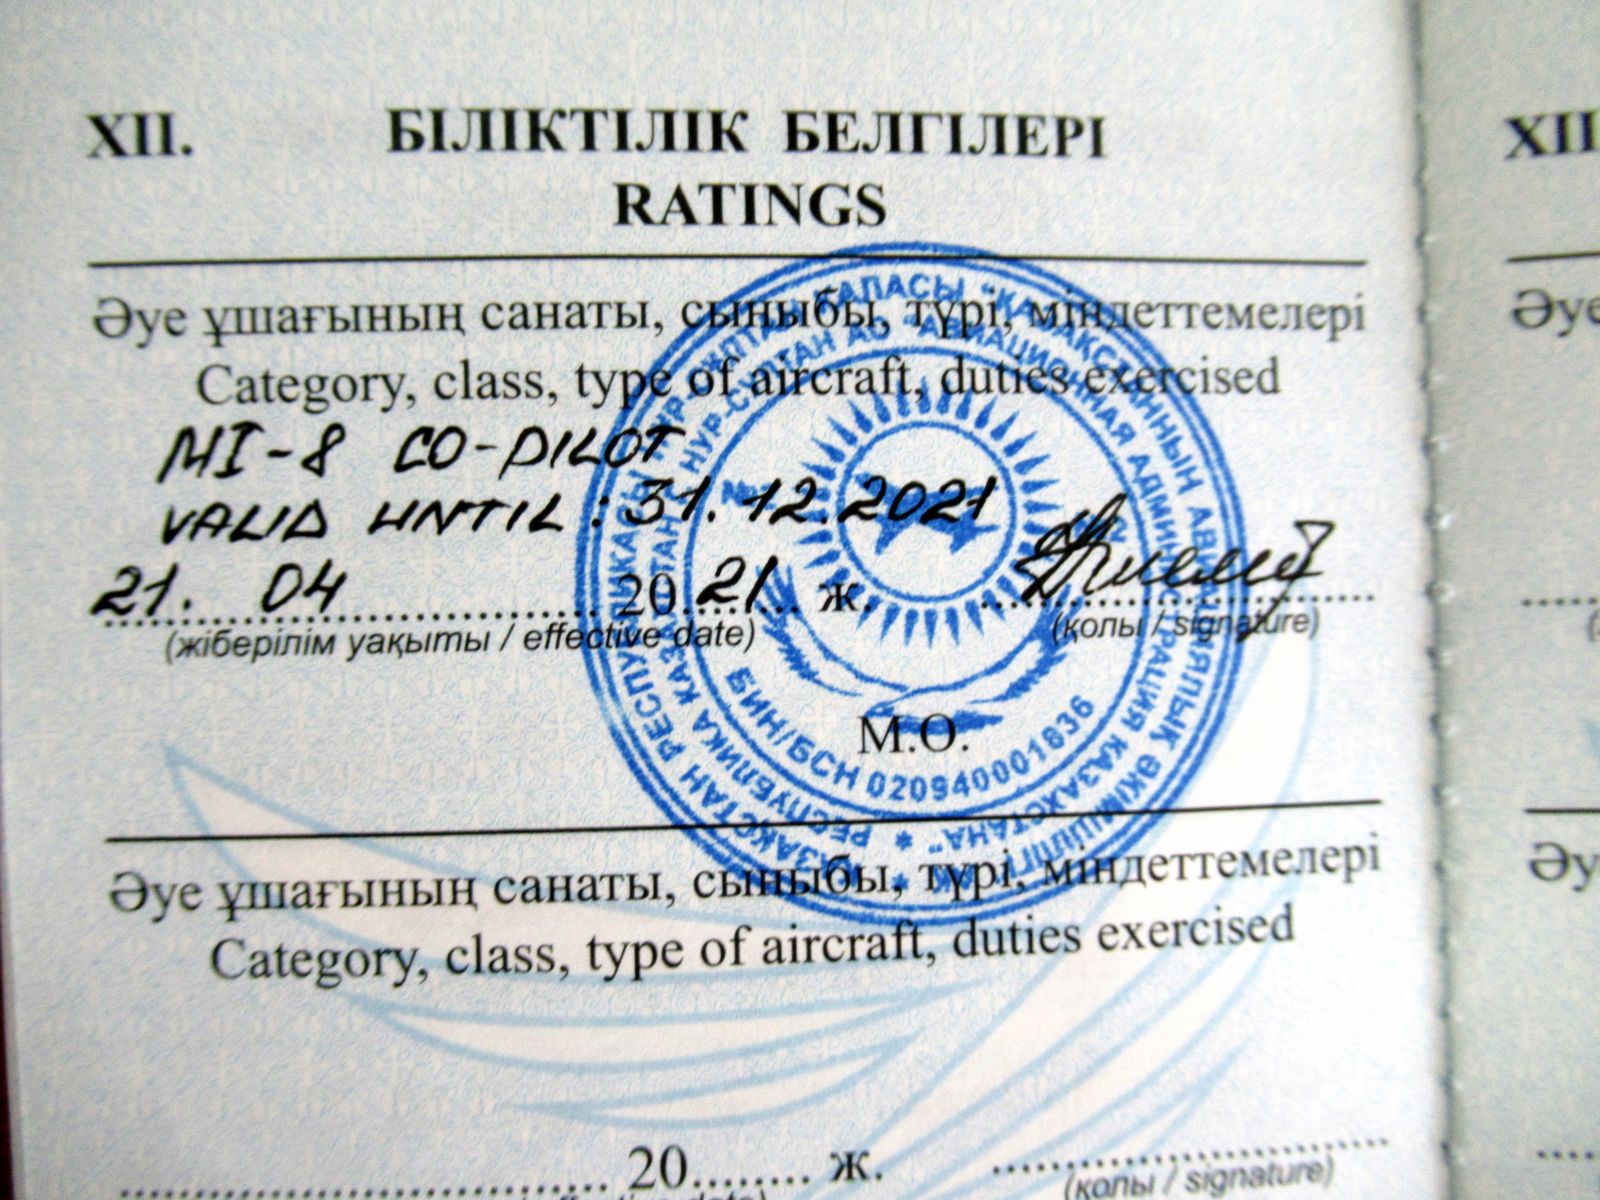 XII. БІЛІКТІЛІК БЕЛГІЛЕРІ
RATINGS
Әуе ұшағының санаты, сыныбы, түрі, міндеттемелері
Category, class, type of aircraft, duties exercised
MI-8 CO-PILOT
VALID UNTIL: 31.12.2021
21. 04 2021 ж.
(жіберілім уақыты / effective date) (қолы / signature)
М.О.
ҚАЗАҚСТАН РЕСПУБЛИКАСЫ НҰР-СҰЛТАН ҚАЛАСЫ "ҚАЗАҚСТАННЫҢ АВИАЦИЯЛЫҚ ӘКІМШІЛІГІ"
РЕСПУБЛИКА КАЗАХСТАН НУР-СУЛТАН АО "АВИАЦИОННАЯ АДМИНИСТРАЦИЯ КАЗАХСТАНА"
БИН/БСН 020940001836
Әуе ұшағының санаты, сыныбы, түрі, міндеттемелері
Category, class, type of aircraft, duties exercised
20........ ж.
effective date) (қолы / signature)
XII
Әуе
Әу